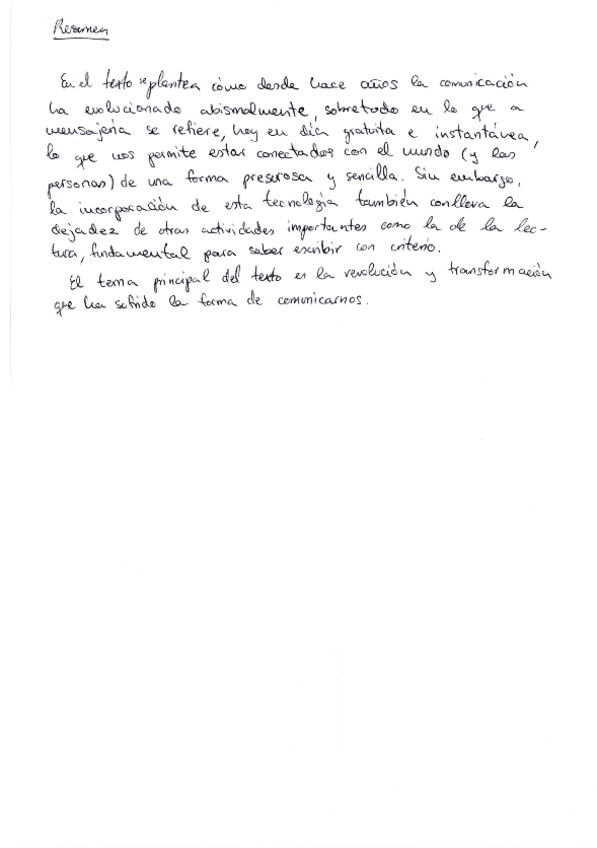 Resumen
En el texto se plantea cómo desde hace años la comunicación
ha evolucionado abismalmente, sobretodo en lo que a
mensajería se refiere, hoy en día gratuita e instantánea,
lo que nos permite estar conectados con el mundo (y las
personas) de una forma presurosa y sencilla. Sin embargo,
la incorporación de esta tecnología también conlleva la
dejadez de otras actividades importantes como la de la lec-
tura, fundamental para saber escribir con criterio.
El tema principal del texto es la revolución y transformación
que ha sufrido la forma de comunicarnos.